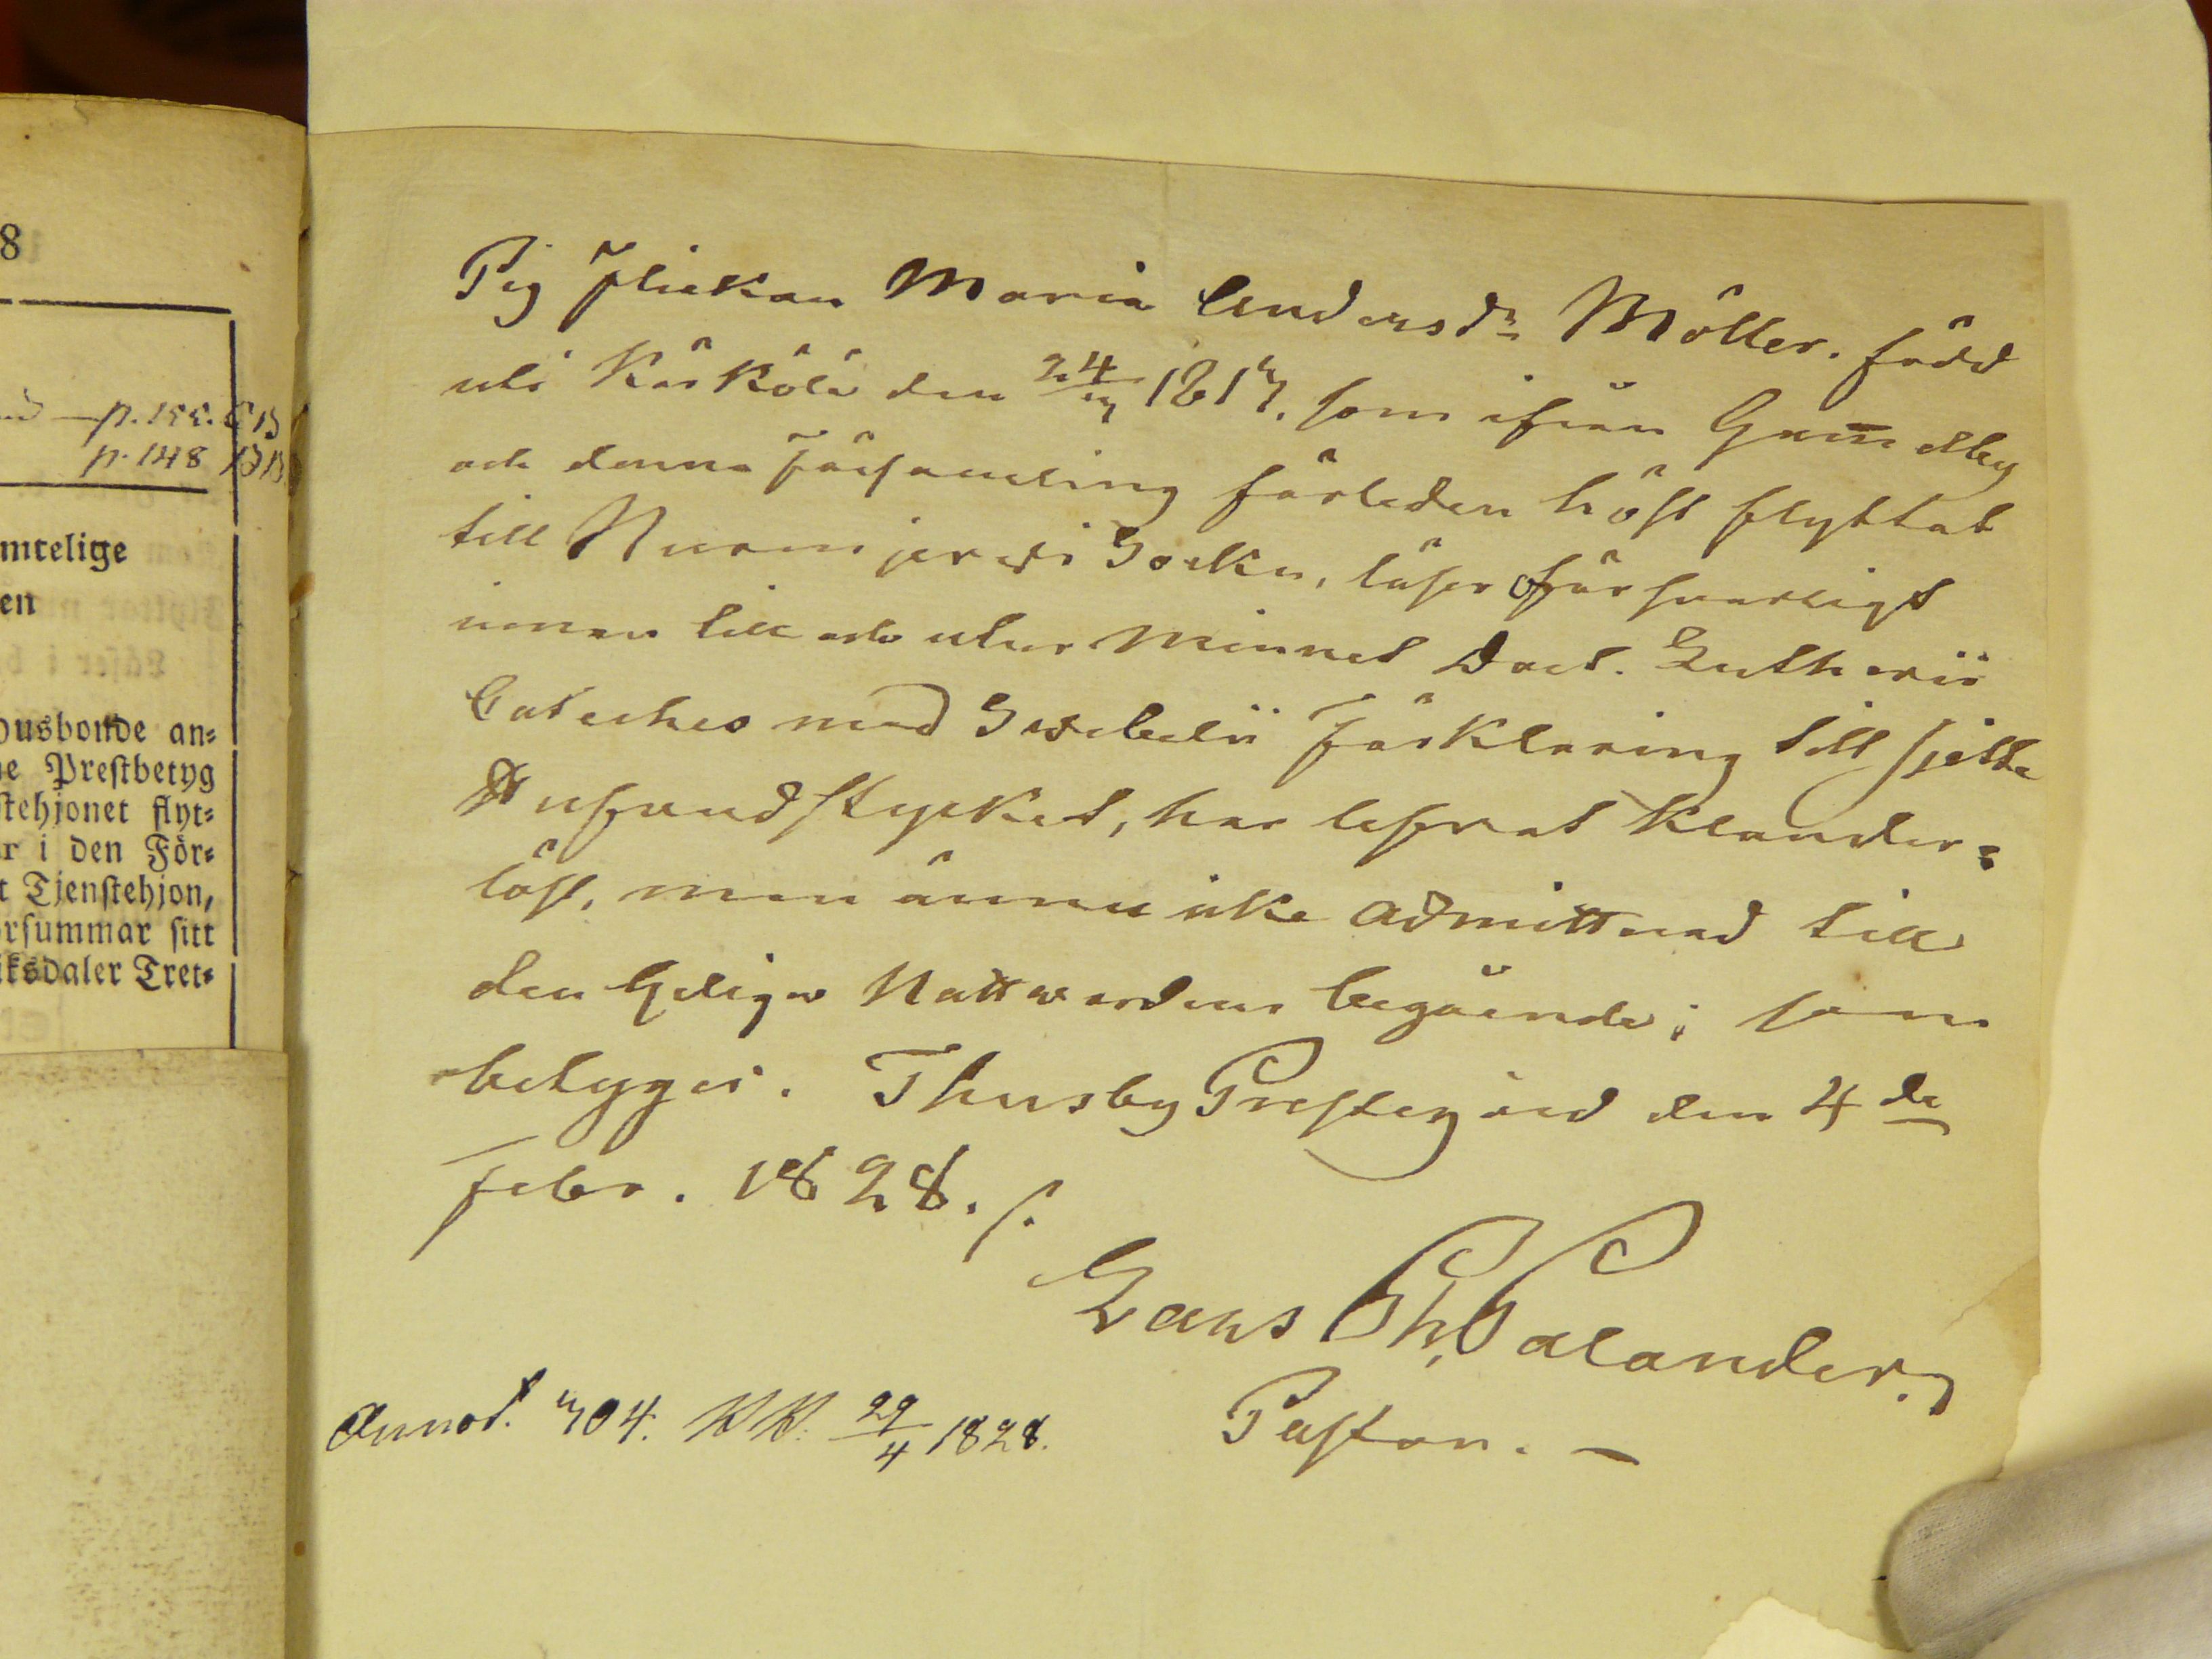 8
p. 155.
p. 148
mtelige
en
usbonde an=
e Prestbetyg
stehjonet flyt=
r i den För=
t Tjenstehjon,
rsummar sitt
iksdaler Tret=
Pig flickan Maria Andersdr Möller. född
uti Kärkölä den 24/7 1817. som ifrån Gammelby
och denna Församling förleden höst flyttat
till Nurmijerwi Sockn, läser försvarligt
innan till och utur Minnet Doct. Lutherii
Cateches med Swebelii Förklaring till sjette
Hufvudstycket, har lefvat klander=
löst, men ännu icke admitterad till
den Heliga Nattwardens begående; som
betygges. Thusby Prestegård den 4de
Febr. 1828.
Lars Ch. Palander.
Pastor. —
Annot. 704. KK. 29/4 1828.